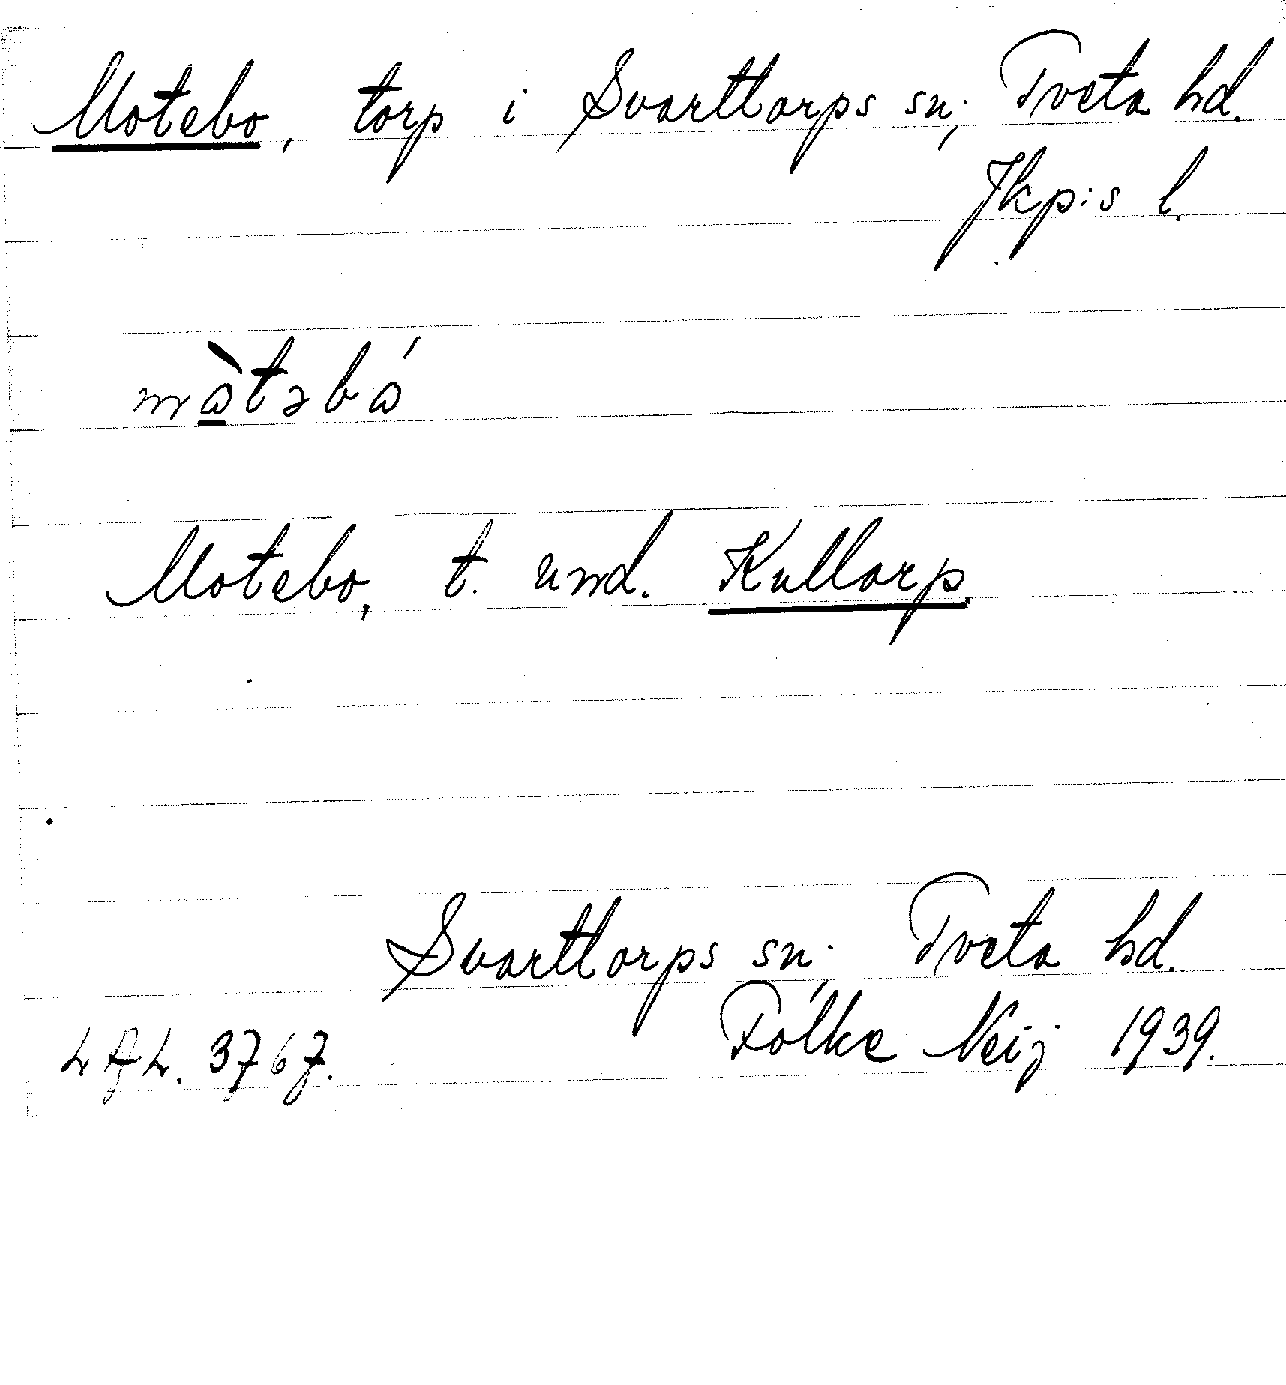 Motebo, torp i Svarttorps sn; Tveta hd.
Jkp:s l.
mɷ̀təbɷ́
Motebo, t. und. Kullarp.
Svarttorps sn; Tveta hd.
Folke Neij 1939.
LAL. 3767.